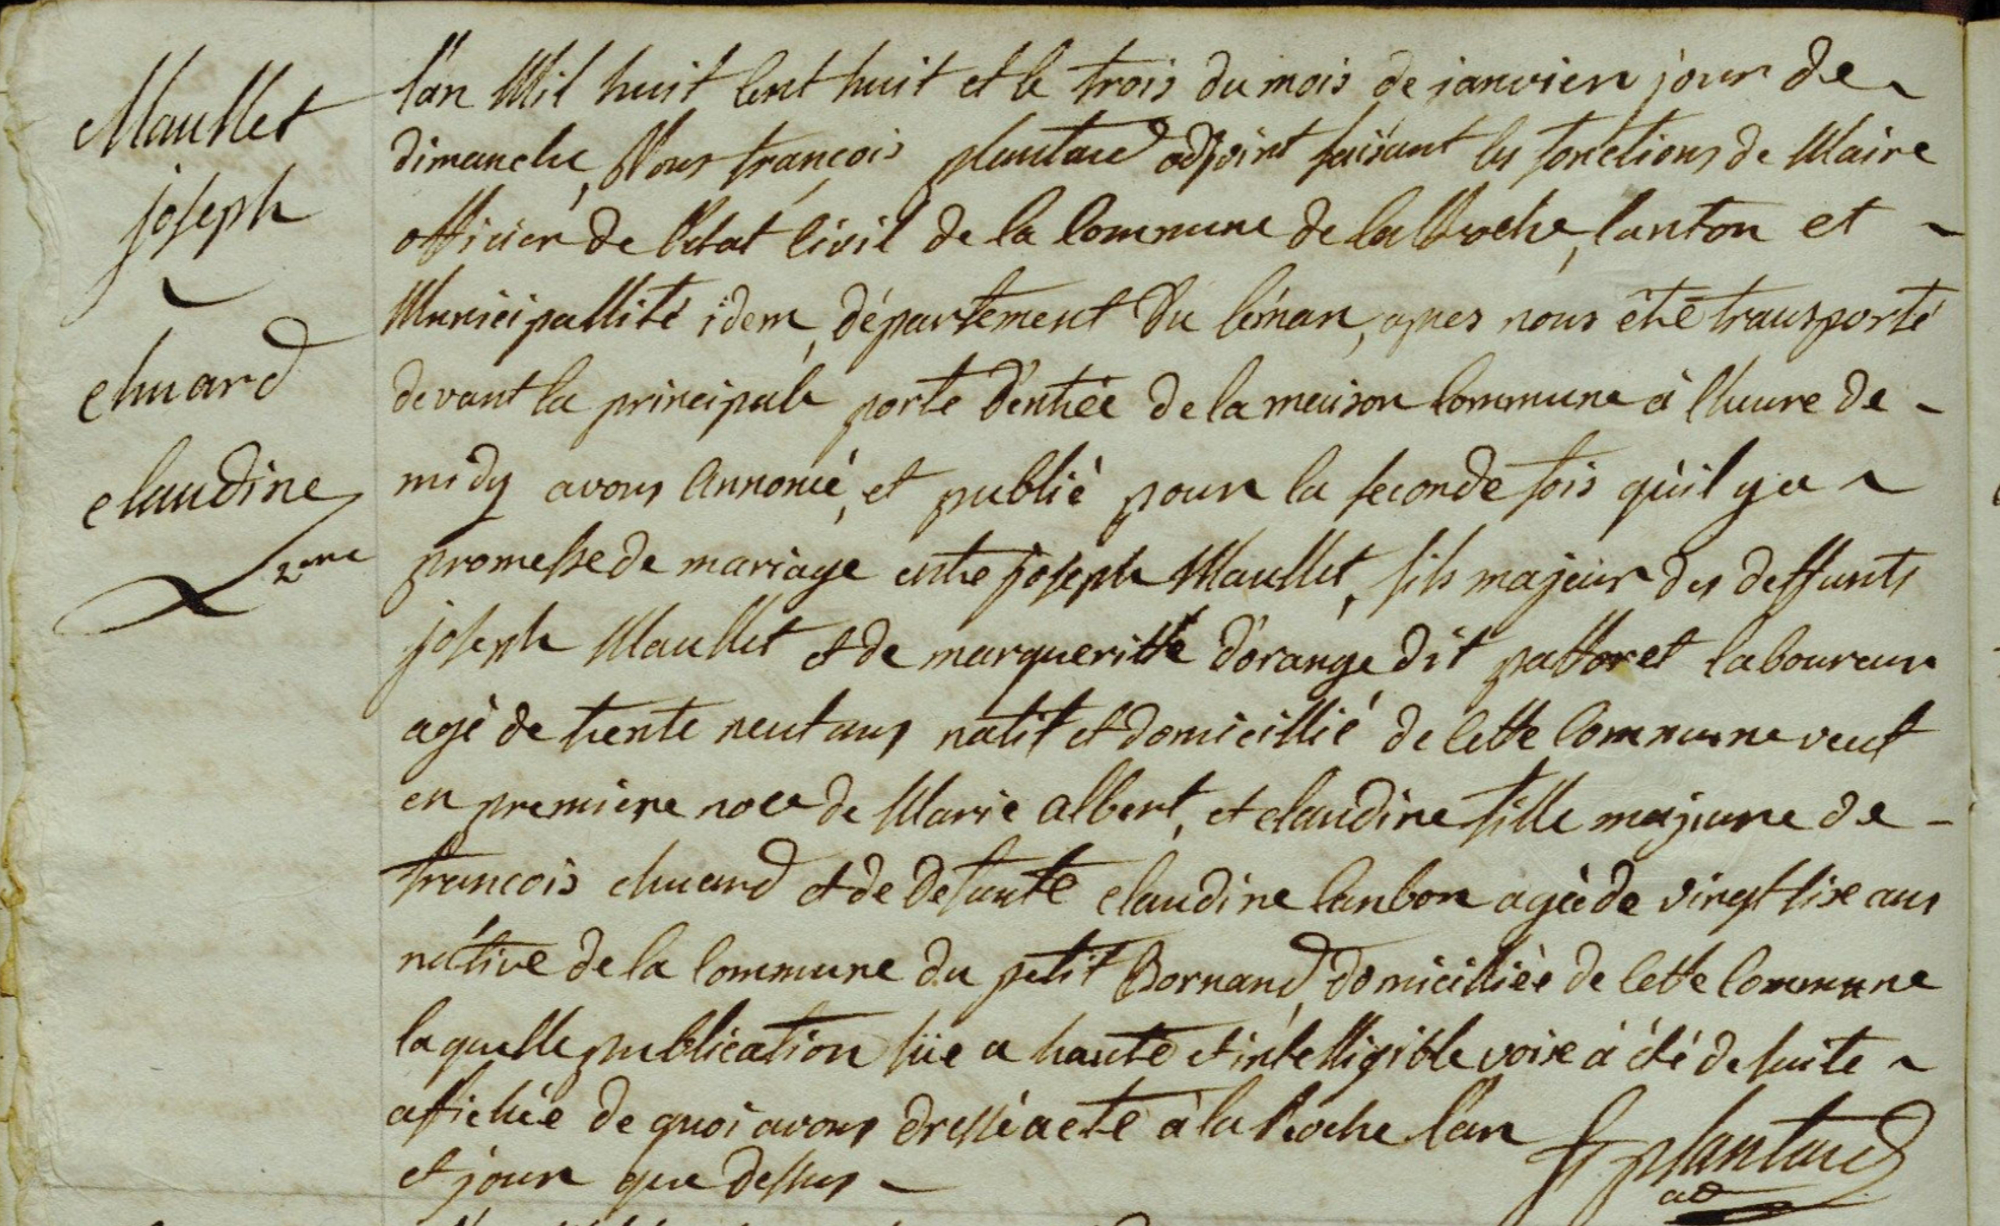 Maullet
joseph
chuard
claudine
2eme
l'an Mil huit Cent huit et le trois du mois de janvier jour de
dimanche, Nous françois plantard adjoint faisant les fonctions de Maire
officier de l'état Civil de la Commune de la Roche, Canton et
Municipallité idem, département du léman, apres nous être transporté
devant la principale porte d'entrée de la maison Commune à l'heure de
midy avons annoncé, et publié pour la seconde fois qu'il y a
promesse de mariage entre joseph Maullet, fils majeur des deffunts
joseph Maullet et de margueritte d'orange dit pattoret laboureur
agé de trente neuf ans natif et domicillié de Cette Commune veuf
en premiere noce de Marie albert, et claudine fille majeure de
francois chuard et de defunte claudine Canbon agée de vingt six ans
nátive de la Commune du petit Bornand, domicilliée de Cette Commune
laquelle publication lüe a haute et intelligible voix à été de suite
affichée de quoi avons dressé acte à la Roche l'an
et jour que dessus
f plantard
ad